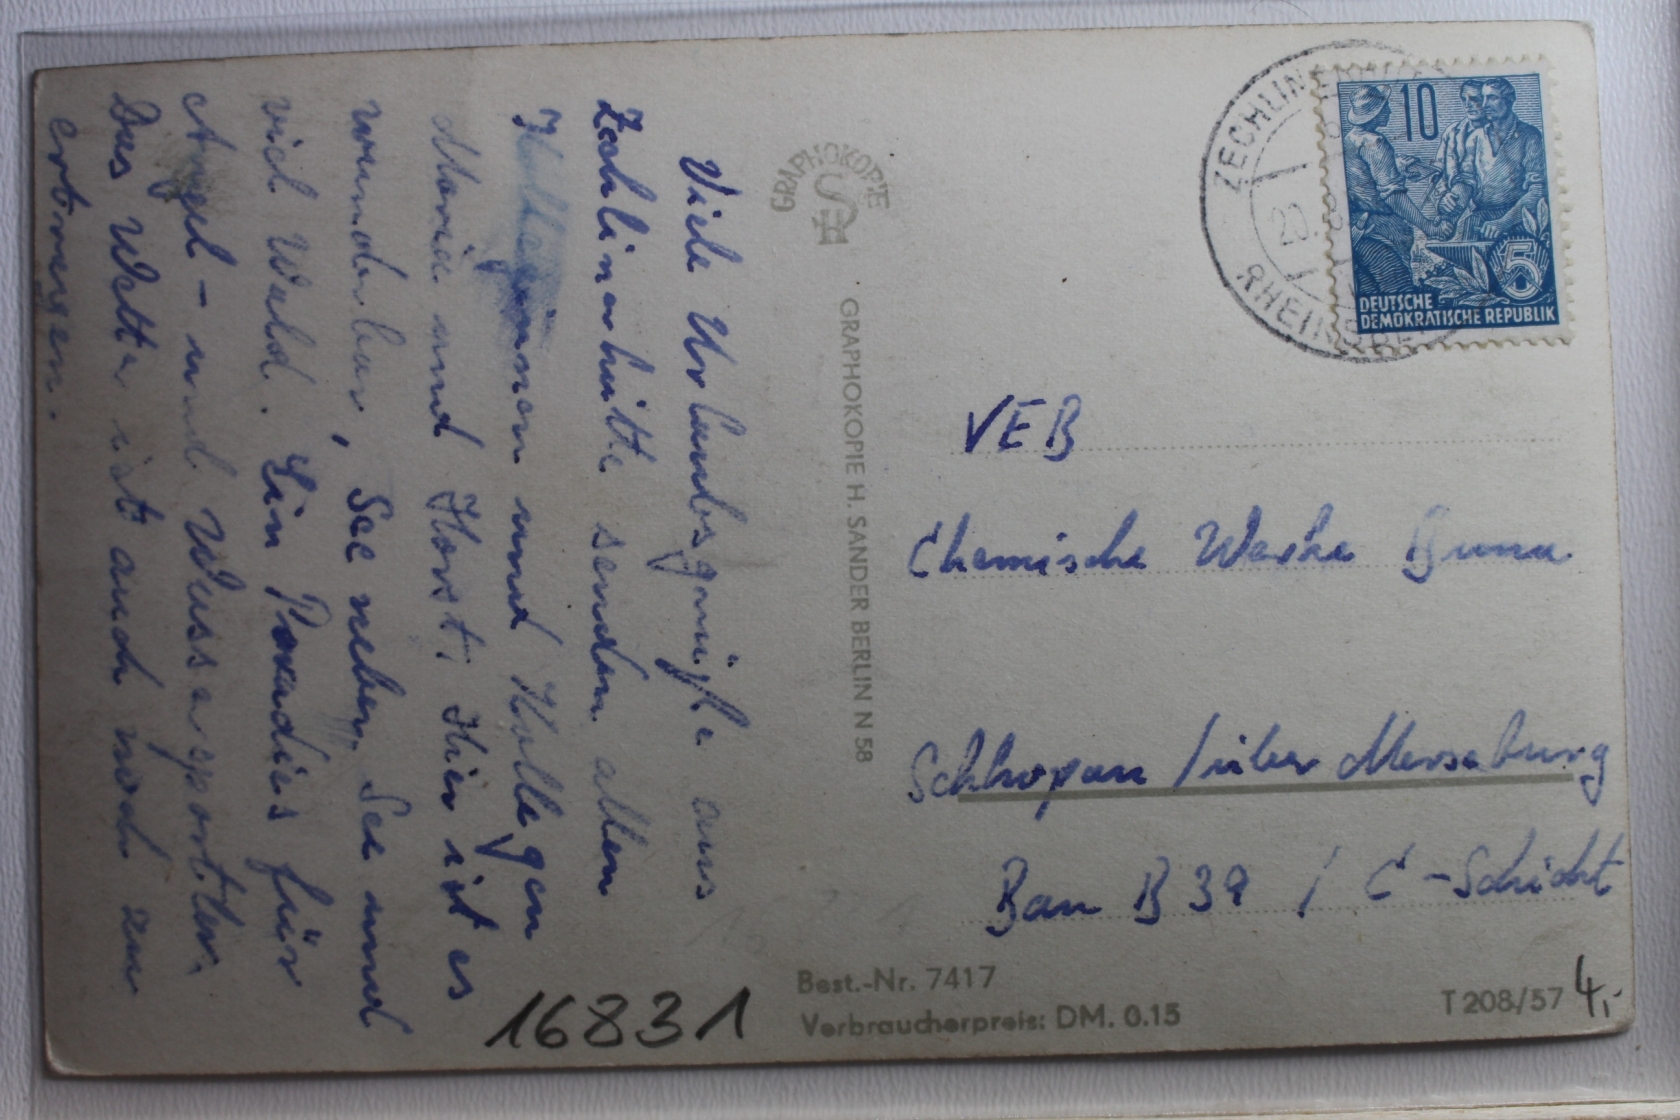 Viele Urlaubsgrüße aus
Zechlinerhütte senden allen
Kolleginnen und Kollegen
Maria und Horst. Hier ist es
wunderbar, See neben See und
viel Wald. Ein Paradies für
Angel- und Wassersportler.
Das Wetter ist auch noch zu
ertragen.
GRAPHOKOPIE
GRAPHOKOPIE H. SANDER BERLIN N 58
ZECHLINERHÜTTE
20.
RHEINSBE
10
5
DEUTSCHE
DEMOKRATISCHE REPUBLIK
VEB
Chemische Werke Buna
Schkopau / über Merseburg
Bau B 39 / C-Schicht
Best.-Nr. 7417
Verbraucherpreis: DM. 0.15
T 208/57
4,-
16831